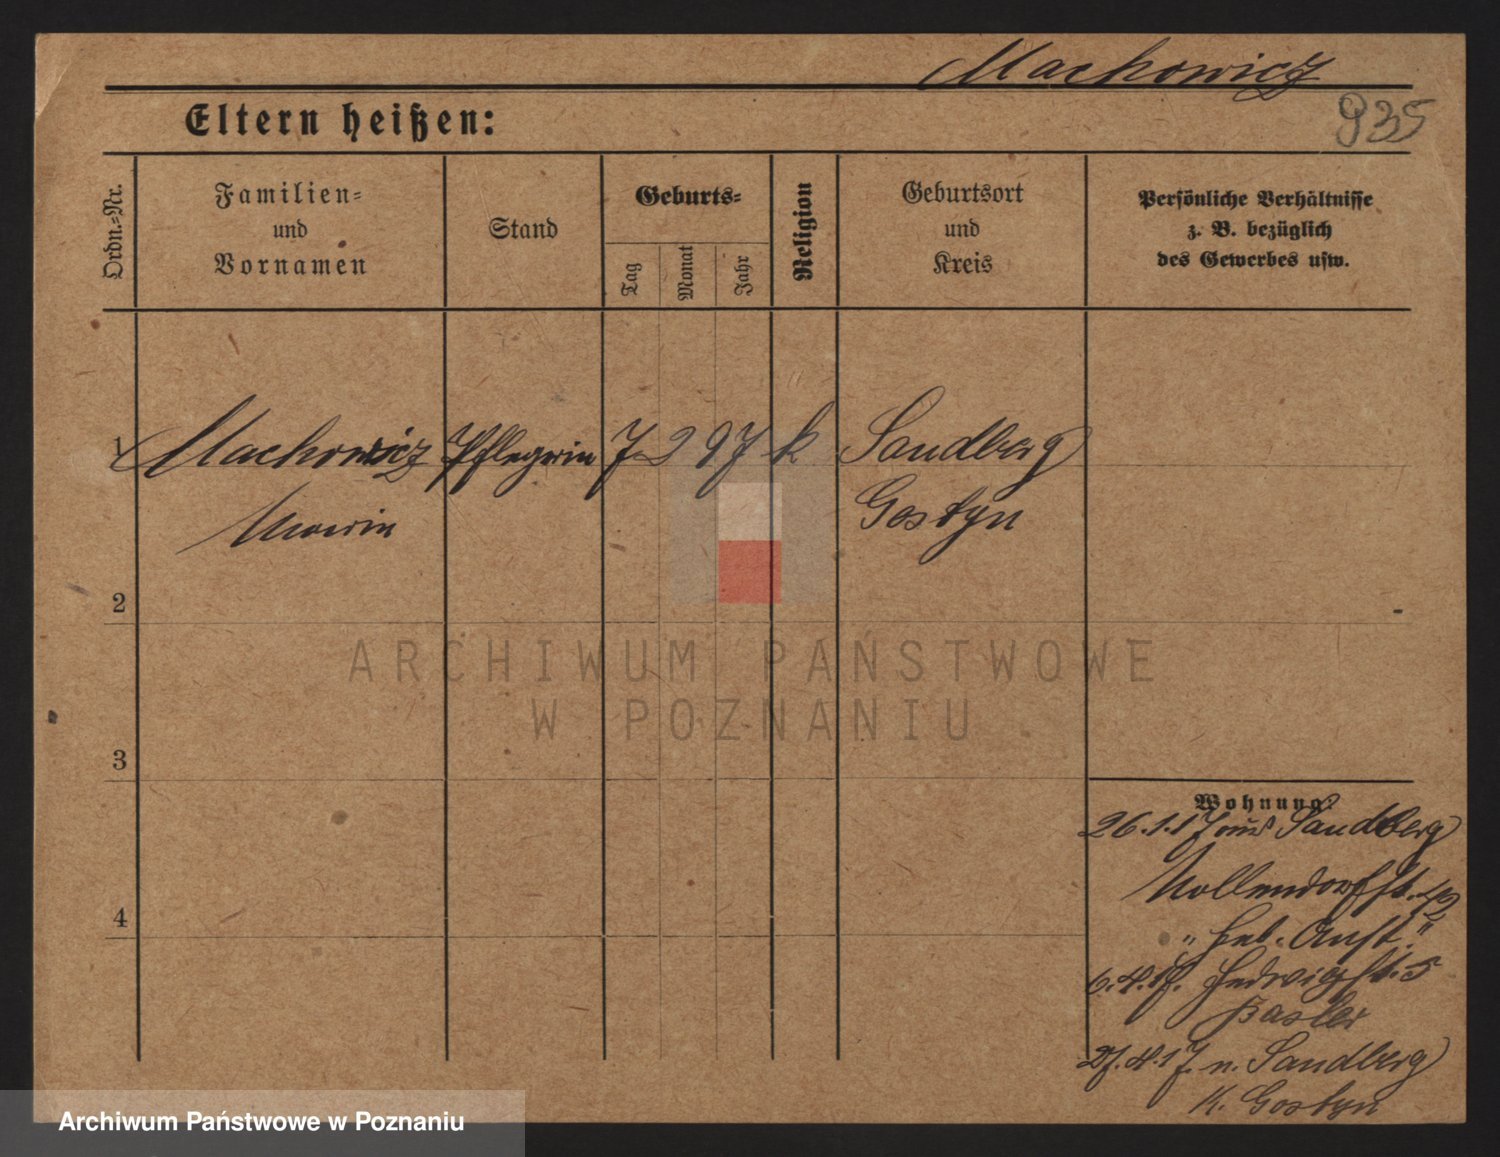 Machowicz
935
Eltern heißen:
Ordn.-Nr.
Familien-
und
Vornamen
Stand
Geburts-
Tag
Monat
Jahr
Religion
Geburtsort
und
Kreis
Persönliche Verhältnisse
z. B. bezüglich
des Gewerbes usw.
1 Machowicz 7 2 97 k Sandberg
Gostyn
2
3
4
ARCHIWUM PAŃSTWOWE
W POZNANIU
Wohnung:
26.1.17 aus Sandberg
Nollendorfst. 42
"Heb. Anst."
6.4.17. Hedwigst. 5
Basler
27.4.17. n. Sandberg
K. Gostyn
Archiwum Państwowe w Poznaniu